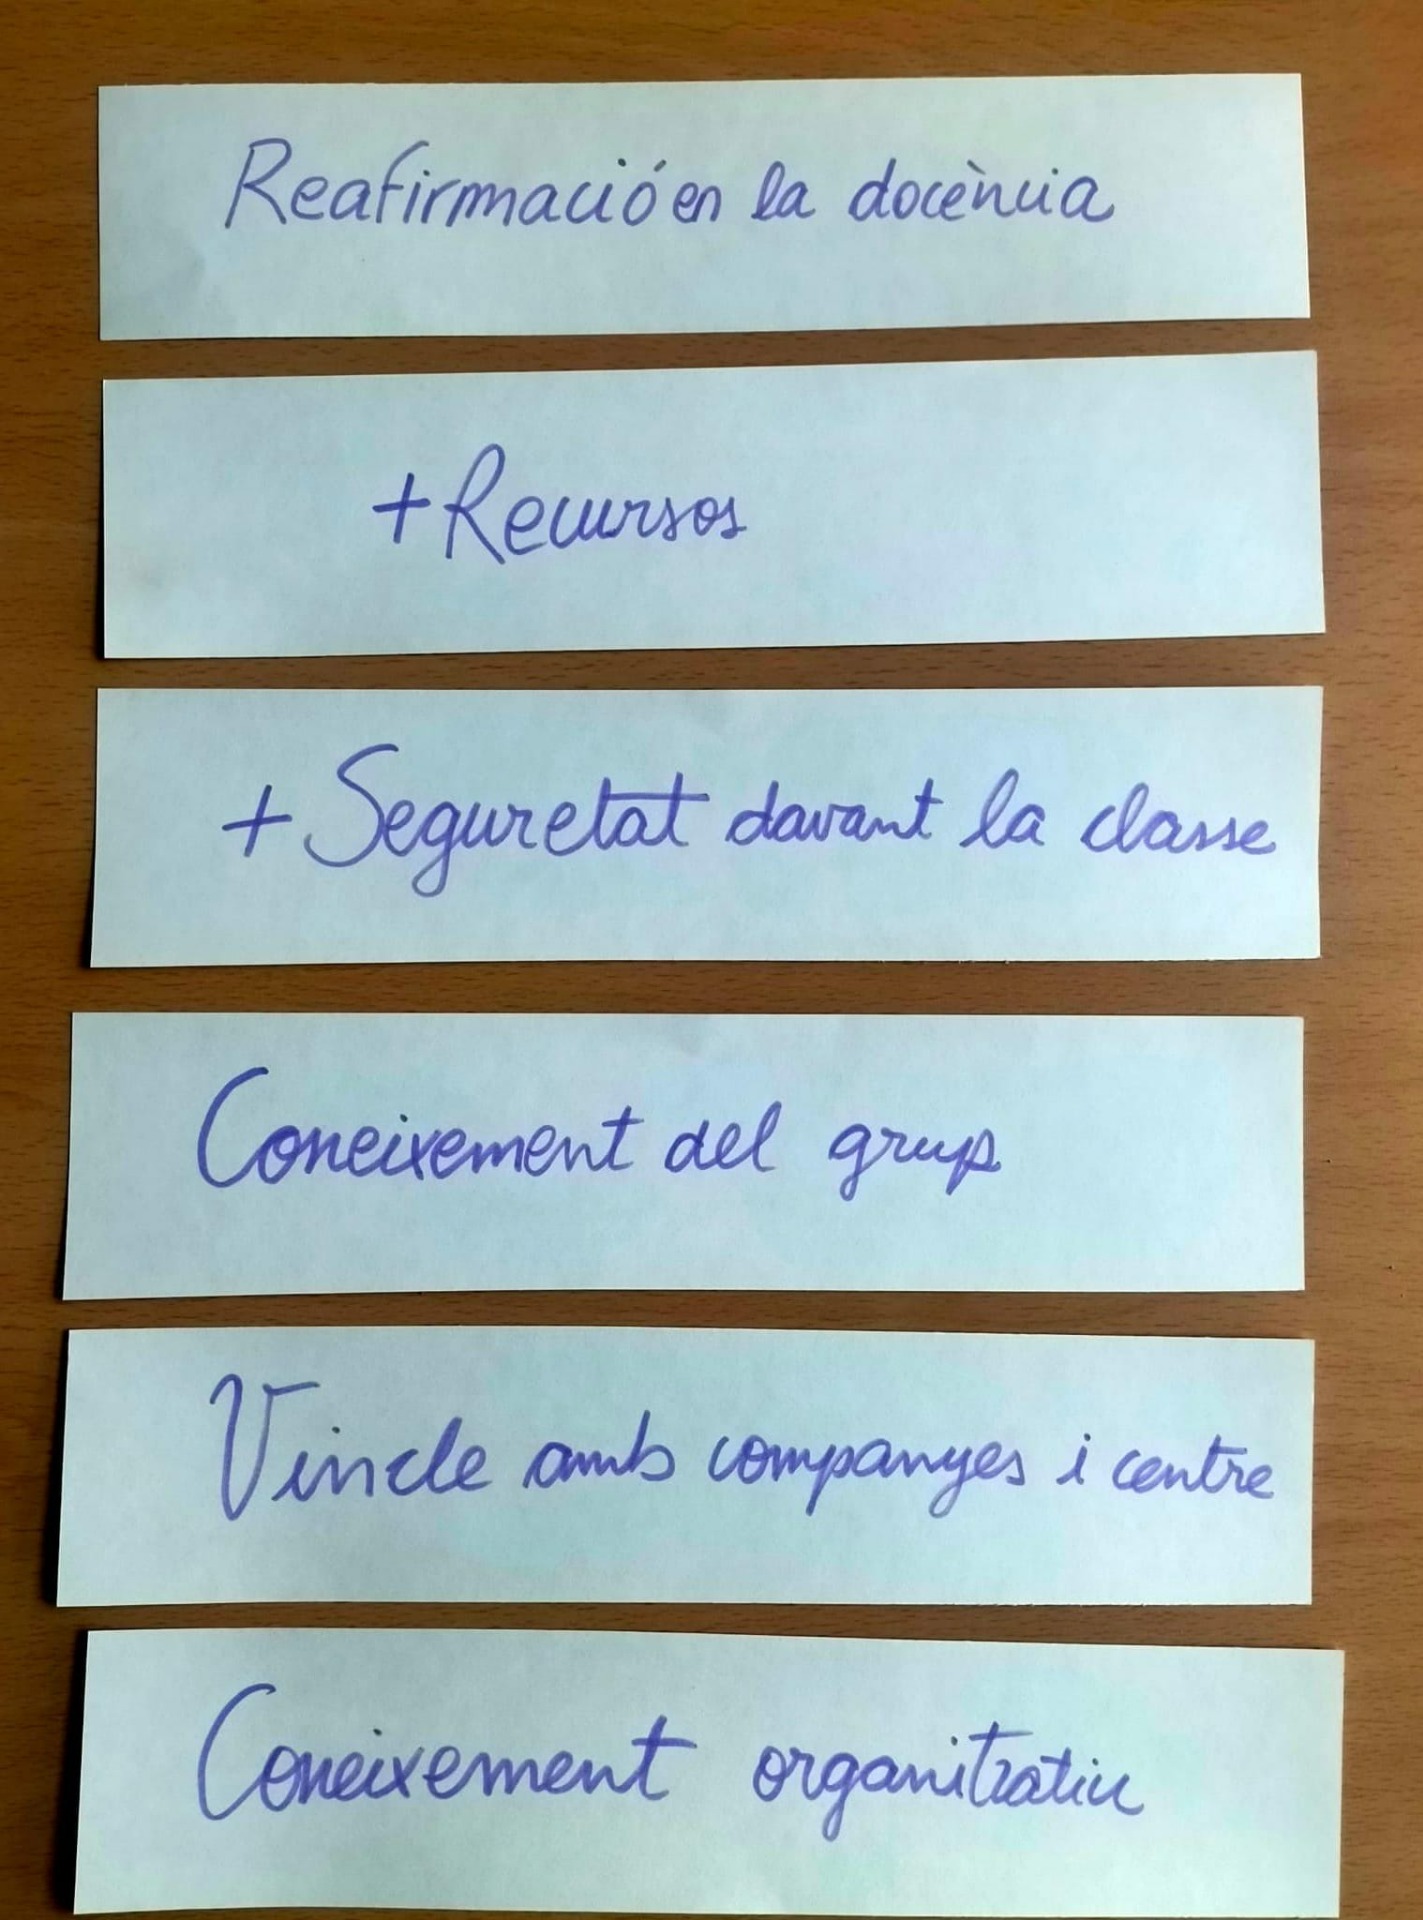 Reafirmació en la docència
+ Recursos
+ Seguretat davant la classe
Coneixement del grup
Vincle amb companyes i centre
Coneixement organitzatiu